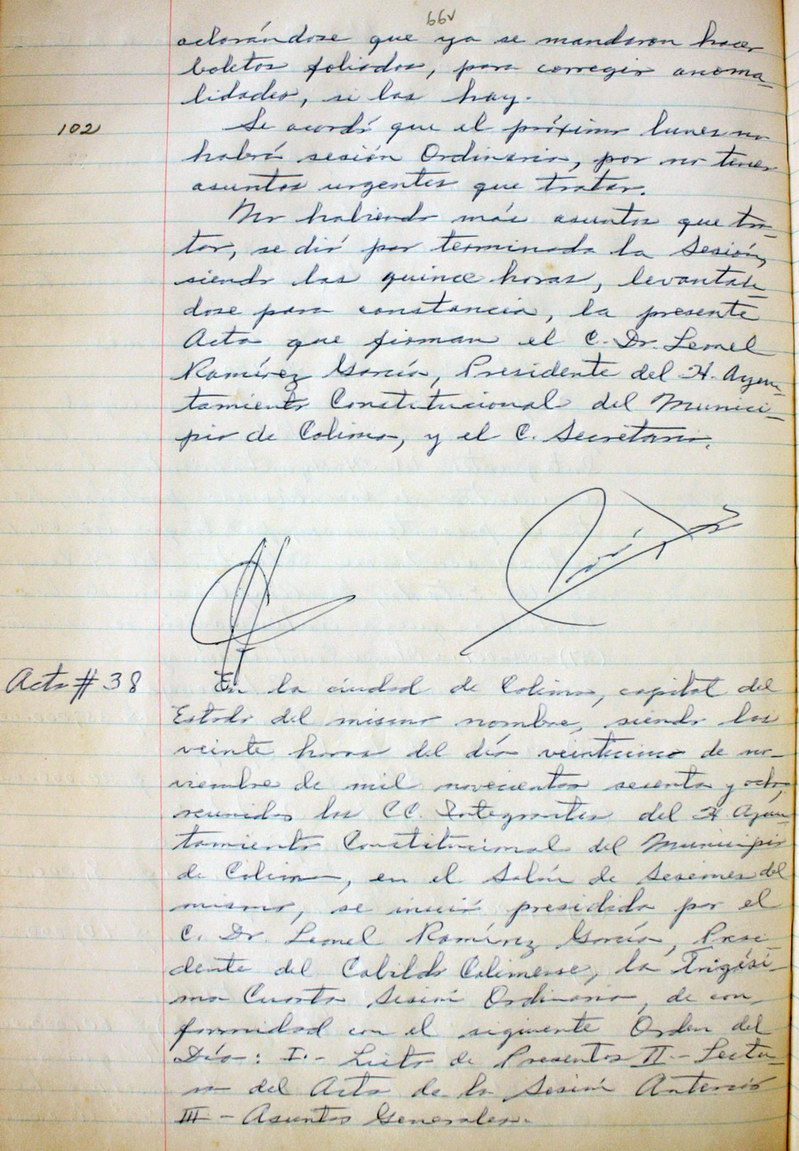 66v
aclarándose que ya se mandaron hacer
boletos foliados, para corregir anoma-
lidades, si las hay.
102
Se acordó que el próximo lunes no
habrá sesión Ordinaria, por no tener
asuntos urgentes que tratar.
No habiendo más asuntos que tra-
tar, se dió por terminada la Sesión,
siendo las quince horas, levantán-
dose para constancia, la presente
Acta que firman el C. Dr. Leonel
Ramírez García, Presidente del H. Ayun-
tamiento Constitucional del Munici-
pio de Colima, y el C. Secretario.
Acta # 38
En la ciudad de Colima, capital del
Estado del mismo nombre, siendo las
veinte horas del día veinticinco de no-
viembre de mil novecientos sesenta y ocho,
reunidos los CC. Integrantes del H. Ayun-
tamiento Constitucional del Municipio
de Colima, en el Salón de Sesiones del
mismo, se inició presidida por el
C. Dr. Leonel Ramírez García, Presi-
dente del Cabildo Colimense, la Trigési-
ma Cuarta Sesión Ordinaria, de con-
formidad con el siguiente Orden del
Día: I.- Lista de Presentes II.- Lectu-
ra del Acta de la Sesión Anterior
III - Asuntos Generales.